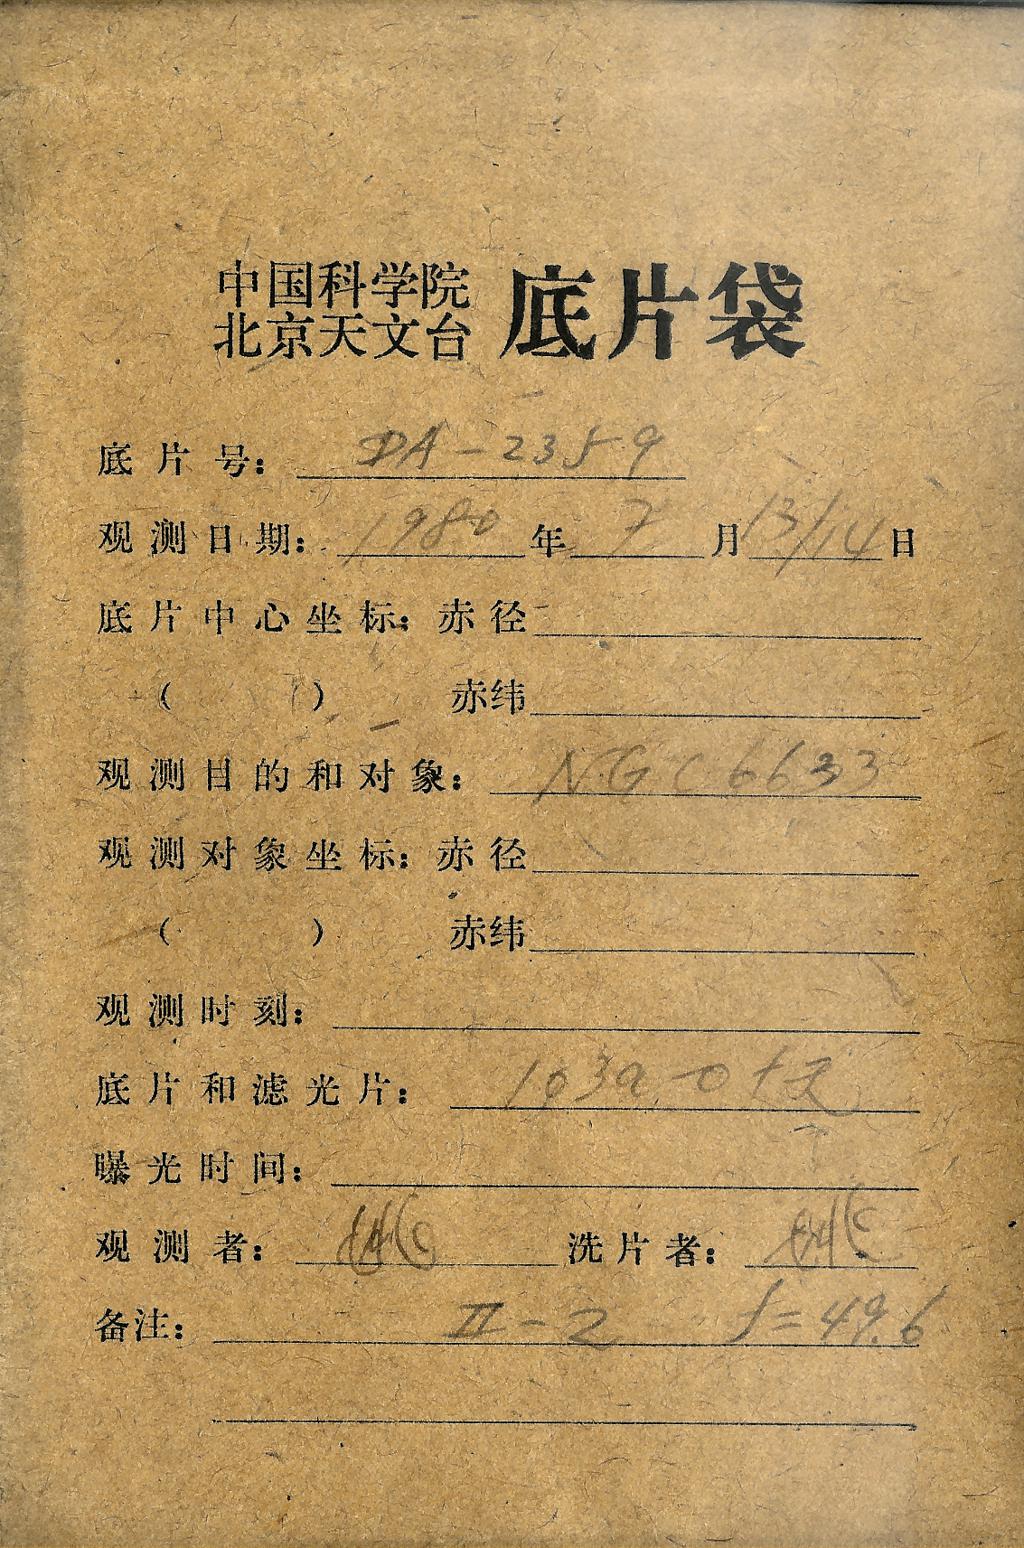 中国科学院
北京天文台
底片袋
底片号: DA-2359
观测日期: 1980年7月13/14日
底片中心坐标: 赤径
( ) 赤纬
观测目的和对象: NGC 6633
观测对象坐标: 赤径
( ) 赤纬
观测时刻:
底片和滤光片: 103a-O+无
曝光时间:
观测者: 洗片者:
备注: II-2 f=49.6